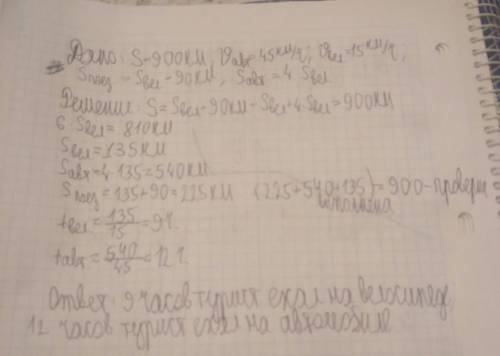 Дано: S=900км, Vавт=45км/ч; Vвел=15км/ч,
Sпоезд = Sвел - 90км, Sавт=4 Sвел
Решение: S=Sвел-90км-Sвел+4·Sвел=900км
6·Sвел=810км
Sвел=135км
Sавт=4·135=540км
Sпоезд=135+90=225км (225+540+135)=900-проверка
выполнена
tвел=135/15=9ч.
tавт=540/45=12ч.
Ответ: 9 часов турист ехал на велосипеде,
12 часов турист ехал на автомобиле